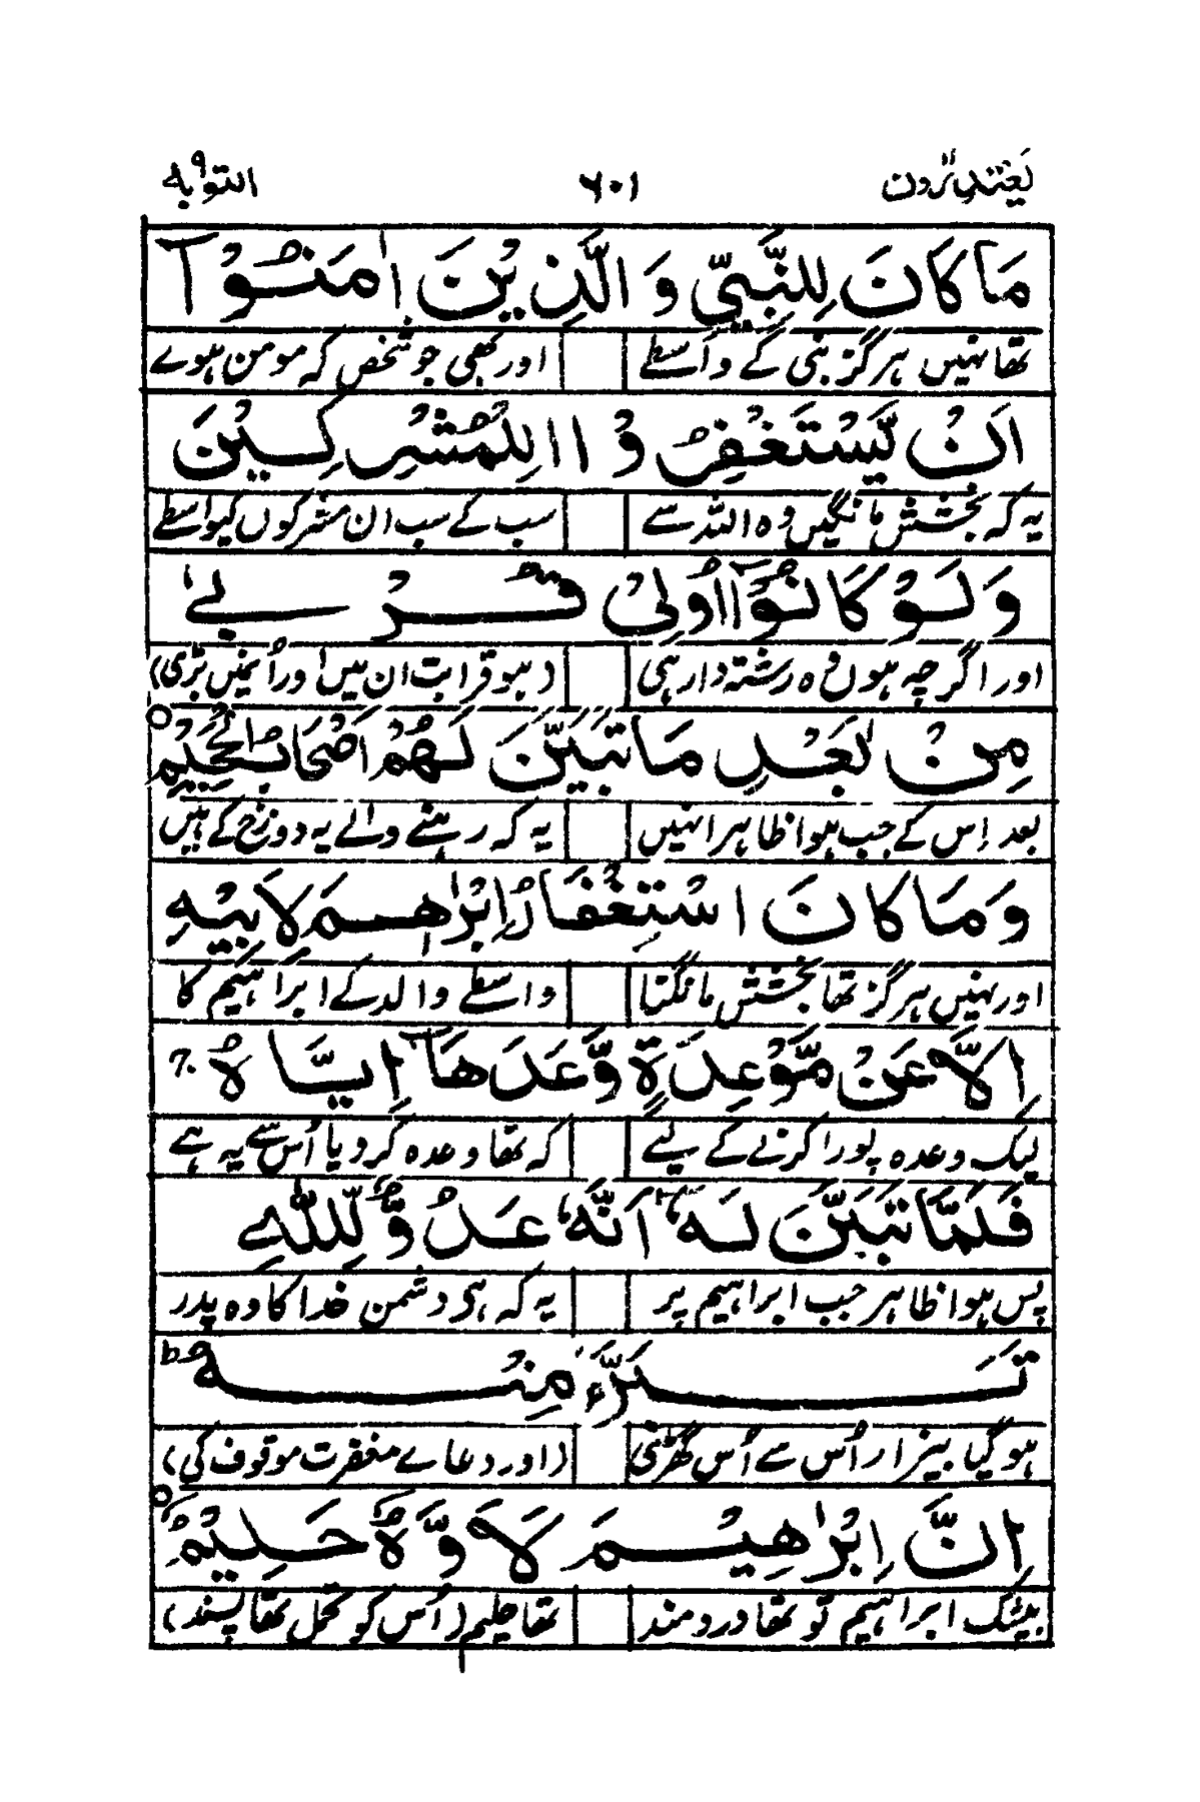 یعتذرون ۶۰۱ التوبه ۹
مَا كَانَ لِلنَّبِيِّ وَالَّذِيْنَ اٰمَنُوْۤا
تھا نہیں ہرگز نبی کے واسطے اور بھی جو شخص کہ مومن ہوے
اَنْ يَّسْتَغْفِرُوْا لِلْمُشْرِكِيْنَ
یہ کہ بخشش مانگیں وہ اللہ سے سب کے سب ان مشرکوں کیواسطے
وَلَوْ كَانُوْۤا اُولِيْ قُرْبٰى
اور اگرچہ ہوں وہ رشتہ دار ہی (ہو قرابت ان میں اور اُنہیں بڑی)
مِنْۢ بَعْدِ مَا تَبَيَّنَ لَهُمْ اَصْحَابُ الْجَحِيْمِ ○
بعد اِس کے جب ہوا ظاہر انہیں یہ کہ رہنے والے یہ دوزخ کے ہیں
وَمَا كَانَ اسْتِغْفَارُ اِبْرٰهِيْمَ لِاَبِيْهِ
اور نہیں ہرگز تھا بخشش مانگنا واسطے والد کے ابراہیم کا
اِلَّا عَنْ مَّوْعِدَةٍ وَّعَدَهَاۤ اِيَّاهُ ۚ
لیک وعدہ پورا کرنے کے لیے کہ تھا وعدہ کر دیا اُس سے یہ ہے
فَلَمَّا تَبَيَّنَ لَهٗۤ اَنَّهٗ عَدُوٌّ لِّلّٰهِ
پس ہوا ظاہر جب ابراہیم پر یہ کہ ہی دشمن خدا کا وہ پدر
تَبَرَّءَ مِنْهُ ؕ
ہو گیا بیزار اُس سے اُس گھڑی (اور دعاے مغفرت موقوف کی)
اِنَّ اِبْرٰهِيْمَ لَاَوَّاهٌ حَلِيْمٌ ○
بیشک ابراہیم تو تھا دردمند تھا حلیم (اُس کو تحمل تھا پسند)